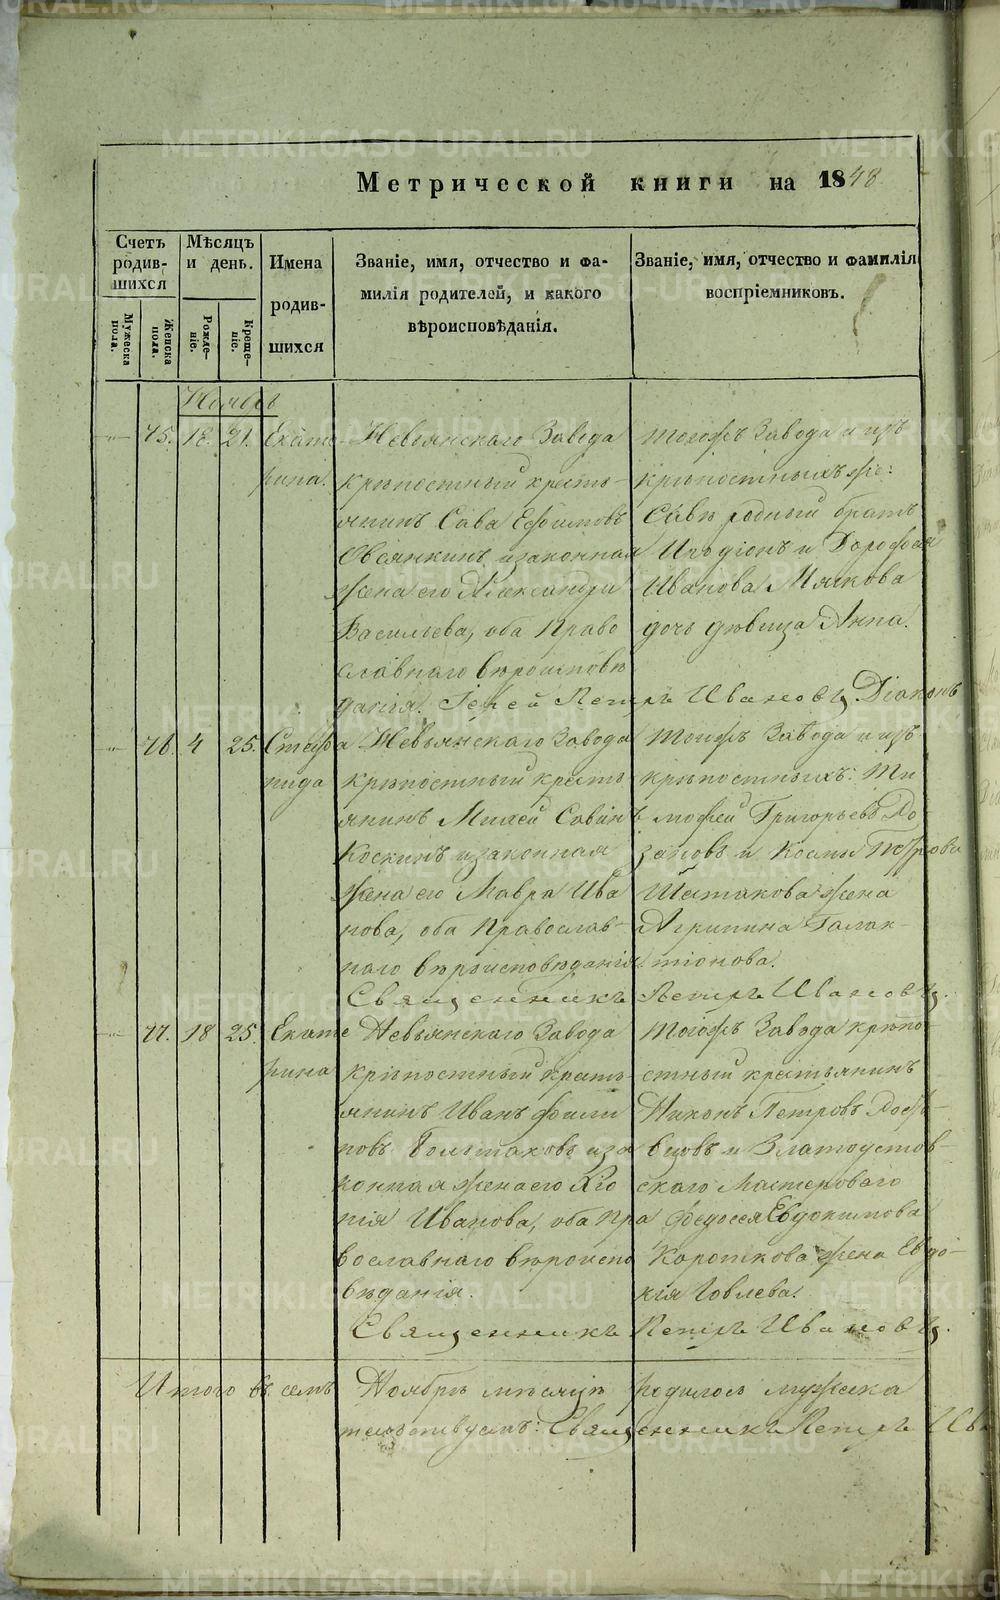 Метрической книги на 1848
Счетъ родив-шихся
Мѣсяцъ и день.
Имена родив-шихся
Званіе, имя, отчество и фа-
милія родителей, и какого
вѣроисповѣданія.
Званіе, имя, отчество и фамилія
воспріемниковъ.
Мужеска пола.
Женска пола.
Рожде-ніе.
Креще-ніе.
Ноябрь
75. 18. 21. Екате-
рина.
Невьянскаго Завода
крѣпостный кресть-
янинъ Сава Ефимовъ
Овсянкинъ и законная
жена его Александра
Васильева, оба Право
славнаго вѣроисповѣ
данія.
Тогожъ Завода и изъ
крѣпостныхъ же:
Савы родный братъ
Иродіонъ и Дорофея
Иванова Мякова
дочь дѣвица Анна.
Іерей Петръ Ивановъ Діаконъ
76. 4 25. Степа
нида
Невьянскаго Завода
крѣпостный кресть
янинъ Михей Савинъ
Коскинъ и законная
жена его Мавра Ива
нова, оба Православ-
наго вѣроисповѣданія.
Тогожъ Завода и изъ
крѣпостныхъ: Ти
мофей Григорьевъ
и Космы Петрова
Шестакова жена
Агрипина Галак-
тіонова.
Священникъ Петръ Ивановъ.
77. 18 25. Екате
рина
Невьянскаго Завода
крѣпостный кресть-
янинъ Иванъ Фили
повъ и за
конная жена его
нія Иванова, оба Пра
вославнаго вѣроиспо
вѣданія.
Тогожъ Завода крѣпо-
стный крестьянинъ
Никонъ Петровъ
и Златоустов-
скаго Мастероваго
Федосея Евдокимова
Короткова жена Евдо-
кія
Священникъ Петръ Ивановъ.
Итого въ семъ Ноябрѣ мѣсяцѣ родилось мужеска
Священникъ Петръ Ива
METRIKI.GASO-URAL.RU